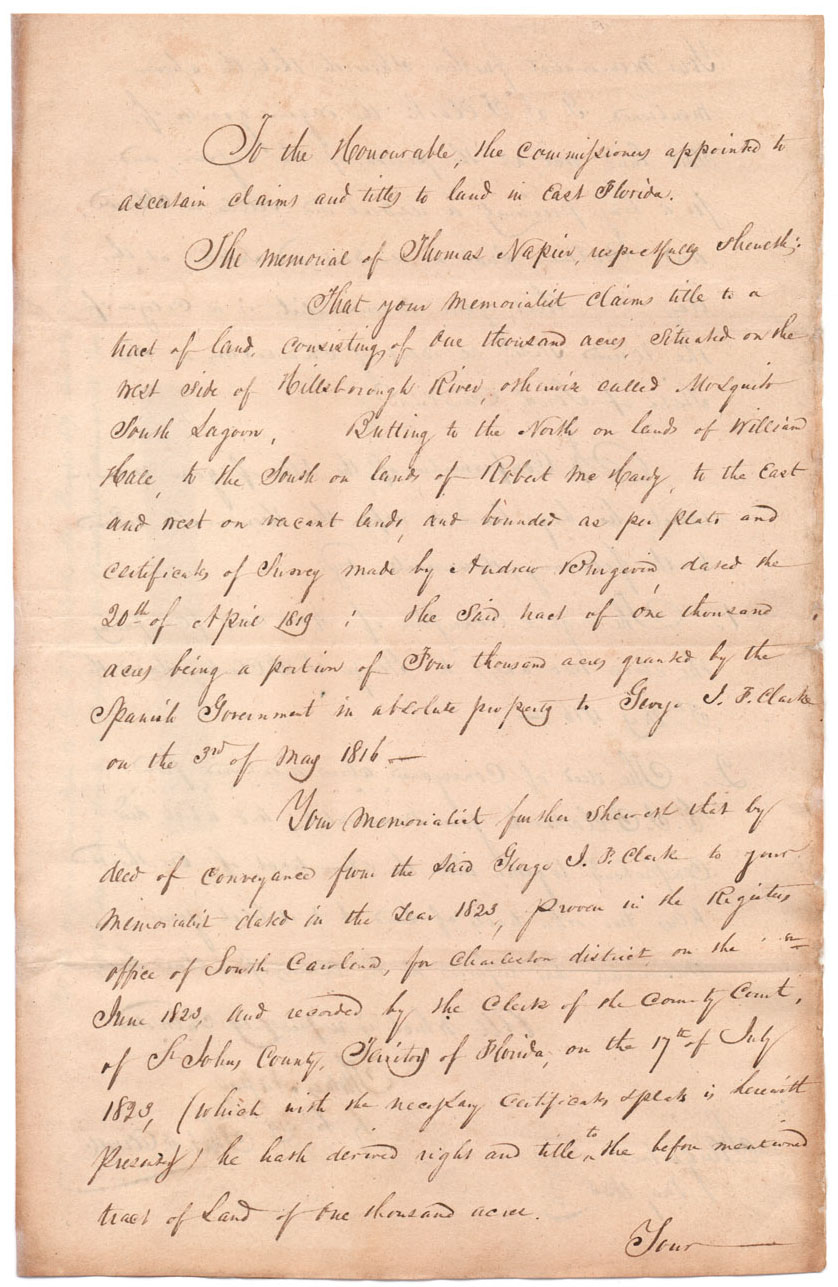 To the Honourable, the Commissioners appointed to
ascertain claims and titles to land in East Florida.
The memorial of Thomas Napier, respectfully sheweth;
That your memorialist claims title to a
tract of land, consisting of One thousand acres, situated on the
west side of Hillsborough River, otherwise called Mosquito
South Lagoon, Butting to the North on lands of William
Hall, to the South on lands of Robert Mc Hardy, to the East
and west on vacant lands, and bounded as per plats and
certificates of Survey made by Andrew Burgevin, dated the
20th of April 1819; the said tract of one thousand
acres being a portion of Four thousand acres granted by the
Spanish Government in absolute property to George I. F. Clarke
on the 3rd of May 1816 —
Your memorialist further sheweth that by
deed of conveyance from the said George I. F. Clark to your
memorialist dated in the Year 1823, proven in the Registers
office of South Carolina, for Charleston district, on the
June 1823, and recorded by the Clerk of the County Court,
of St Johns County, Territory of Florida, on the 17th of July
1823, (which with the necessary certificates & plats is herewith
presented) he hath derived right and title to the before mentioned
tract of Land of One thousand acres.
Your